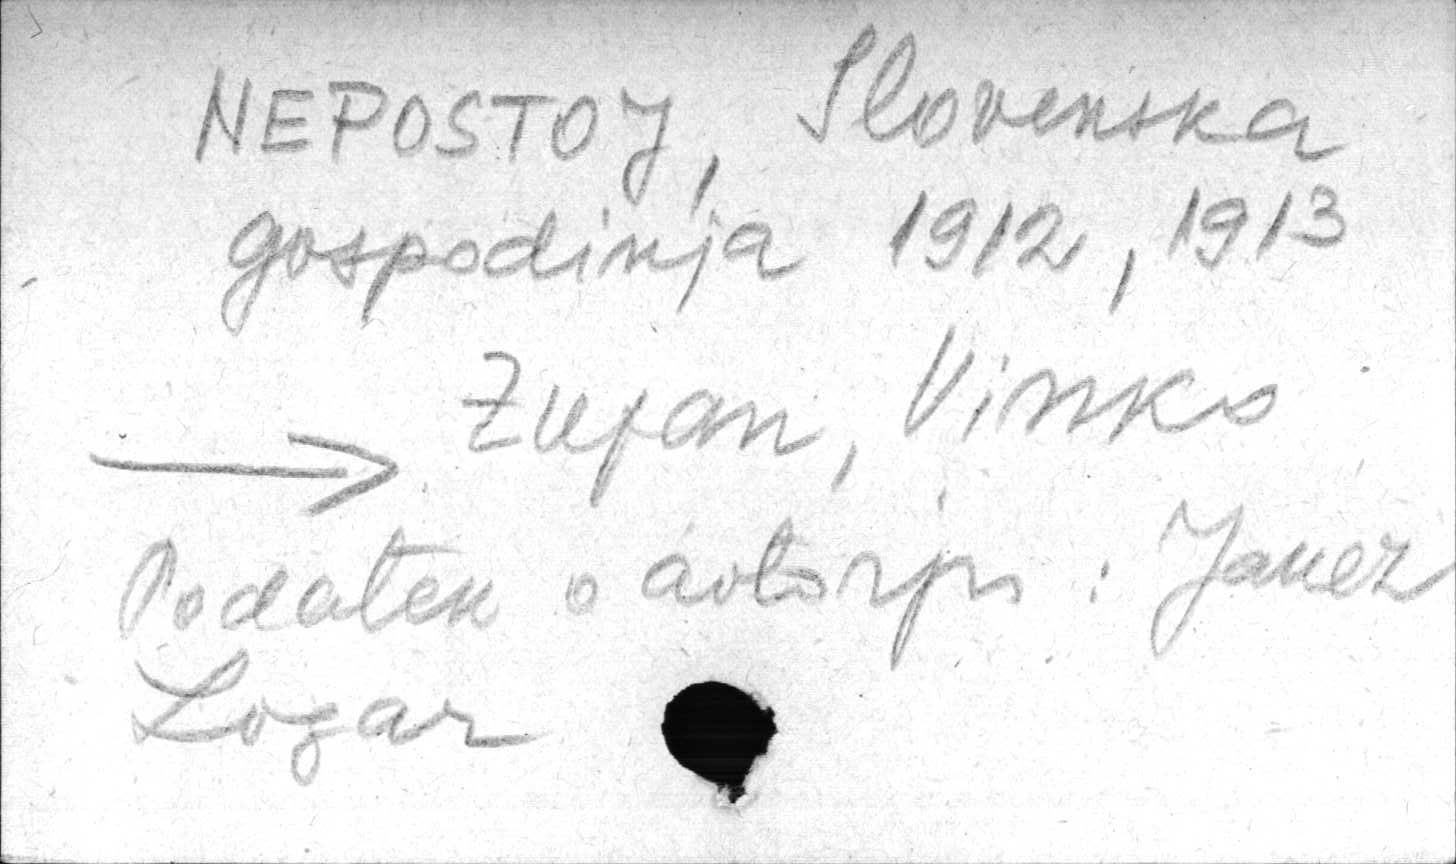 NEPOSTOJ, Slovenska
gospodinja 1912, 1913
Zupan, Vinko
Podatek o avtorju: Janez
Logar